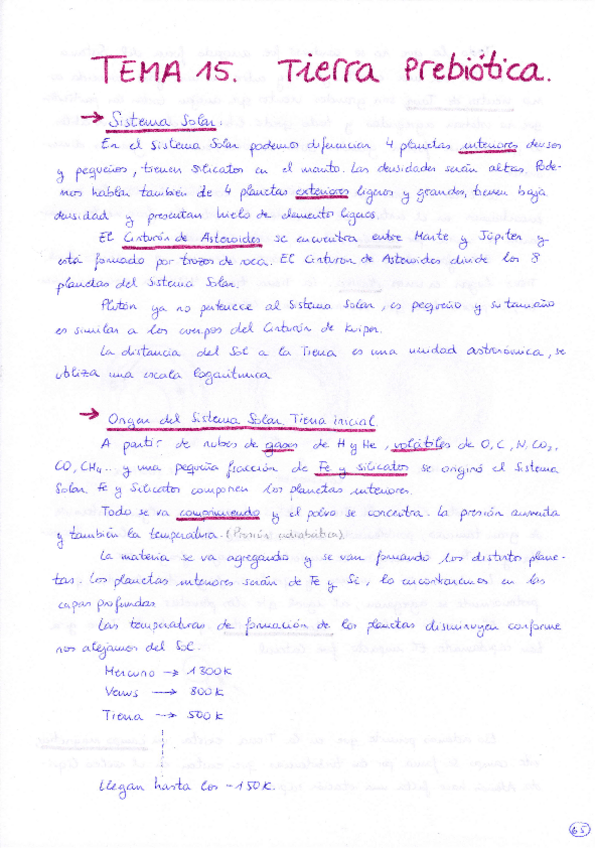 TEMA 15. Tierra Prebiótica.
→ Sistema Solar.
En el Sistema Solar podemos diferenciar 4 planetas interiores densos
y pequeños, tienen silicatos en el manto. Las densidades serán altas. Pode-
mos hablar también de 4 planetas exteriores ligeros y grandes, tienen baja
densidad y presentan hielo de elementos ligeros.
El Cinturón de Asteroides se encuentra entre Marte y Júpiter y
está formado por trozos de roca. El Cinturón de Asteroides divide los 8
planetas del Sistema Solar.
Plutón ya no pertenece al Sistema Solar, es pequeño y su tamaño
es similar a los cuerpos del Cinturón de Kuiper.
La distancia del Sol a la Tierra es una unidad astronómica, se
utiliza una escala logarítmica
→ Origen del Sistema Solar. Tierra inicial
A partir de nubes de gases de H y He, volátiles de O, C, N, CO₂,
CO, CH₄... y una pequeña fracción de Fe y silicatos se originó el Sistema
Solar. Fe y Silicatos componen los planetas interiores.
Todo se va comprimiendo y el polvo se concentra. La presión aumenta
y también la temperatura. (Presión adiabática)
La materia se va agregando y se van formando los distintos plane-
tas. Los planetas interiores serán de Fe y Si, lo encontraremos en las
capas profundas
Las temperaturas de formación de los planetas disminuyen conforme
nos alejamos del Sol.
Mercurio → 1300K
Venus → 800K
Tierra → 500K
Llegan hasta los -150K.
65